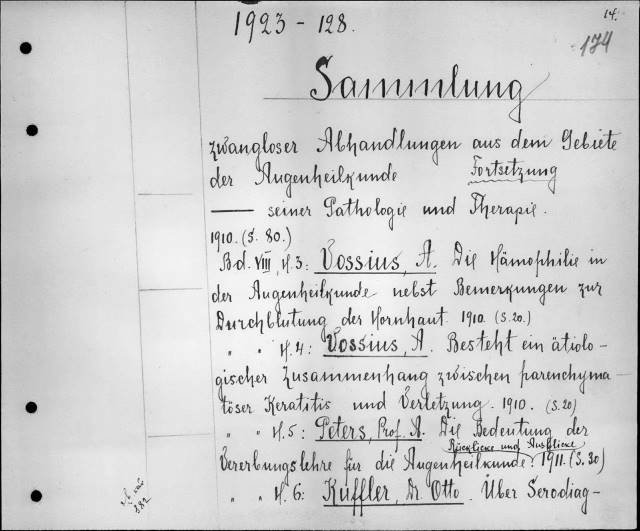 1923 - 128.
14.
174
Sammlung
zwangloser Abhandlungen aus dem Gebiete
der Augenheilkunde Fortsetzung
—— seiner Pathologie und Therapie.
1910. (S. 80.)
Bd. VIII, H. 3: Vossius, A. Die Hämophilie in
der Augenheilkunde nebst Bemerkungen zur
Durchblutung der Hornhaut. 1910. (S. 20.)
" " H. 4: Vossius, A. Besteht ein ätiolo-
gischer Zusammenhang zwischen parenchyma-
töser Keratitis und Verletzung. 1910. (S. 20)
" " H. 5: Peters, Prof. A. Die Bedeutung der
Rücklicke und Ausblicke
Vererbungslehre für die Augenheilkunde. 1911. (S. 30)
" " H. 6: Kuffler, Dr. Otto. Über Serodiag-
382